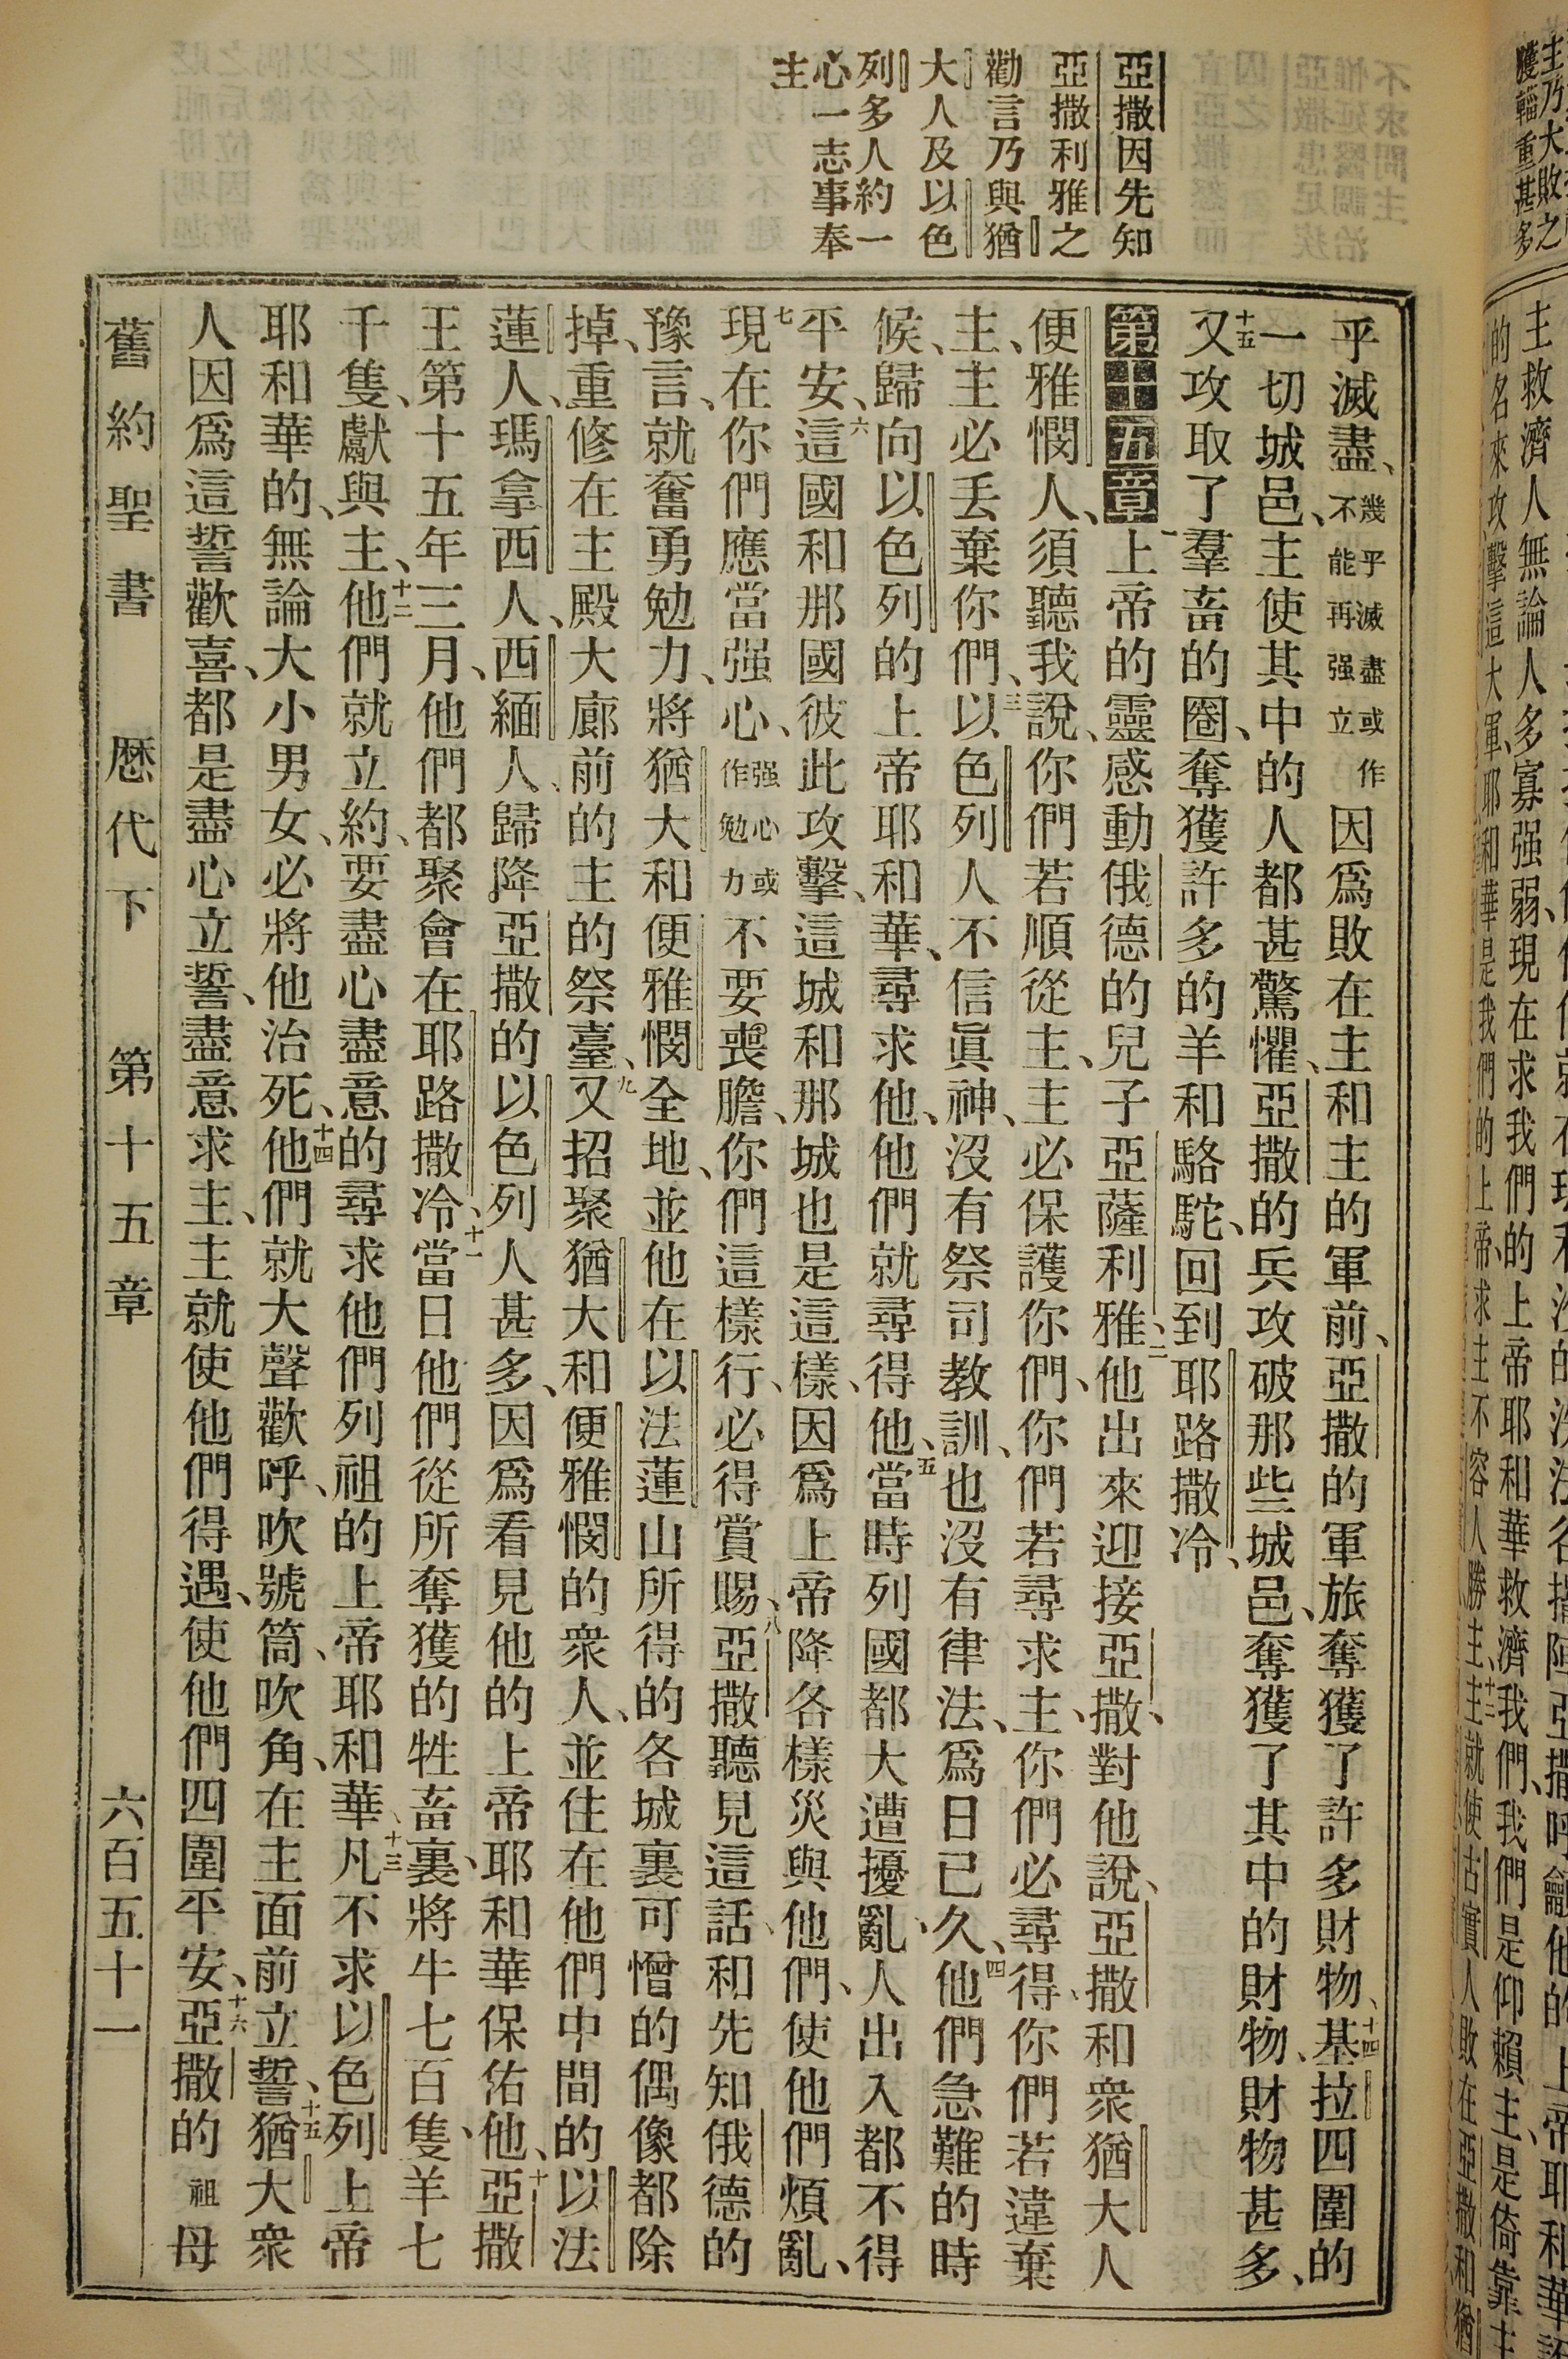 亞撒因先知
亞撒利雅之
勸言乃與猶
大人及以色
列多人約一
心一志事奉
主
乎滅盡、幾乎滅盡或作不能再强立因爲敗在主和主的軍前、亞撒的軍旅奪獲了許多財物、十四基拉四圍的
一切城邑、主使其中的人都甚驚懼、亞撒的兵攻破那些城邑、奪獲了其中的財物、財物甚多、
十五又攻取了羣畜的圈、奪獲許多的羊和駱駝、回到耶路撒冷、
第十五章一上帝的靈感動俄德的兒子亞薩利雅、二他出來迎接亞撒、對他說、亞撒和衆猶大人
便雅憫人、須聽我說、你們若順從主、主必保護你們、你們若尋求主、你們必尋得、你們若違棄
主、主必丟棄你們、三以色列人不信眞神、沒有祭司教訓、也沒有律法、爲日已久、四他們急難的時
候、歸向以色列的上帝耶和華、尋求他、他們就尋得他、五當時列國都大遭擾亂、人出入都不得
平安、六這國和那國彼此攻擊、這城和那城也是這樣、因爲上帝降各樣災與他們、使他們煩亂、
七現在你們應當强心、强心或作勉力不要喪膽、你們這樣行、必得賞賜、八亞撒聽見這話、和先知俄德的
豫言、就奮勇勉力、將猶大和便雅憫全地、並他在以法蓮山所得的各城裏可憎的偶像都除
掉、重修在主殿大廊前的主的祭臺、九又招聚猶大和便雅憫的衆人、並住在他們中間的以法
蓮人、瑪拿西人、西緬人、歸降亞撒的以色列人甚多、因爲看見他的上帝耶和華保佑他、十亞撒
王第十五年三月、他們都聚會在耶路撒冷、十一當日他們從所奪獲的牲畜裏、將牛七百隻、羊七
千隻、獻與主、十二他們就立約、要盡心盡意的尋求他們列祖的上帝耶和華、十三凡不求以色列上帝
耶和華的、無論大小男女、必將他治死、十四他們就大聲歡呼、吹號筒、吹角、在主面前立誓、十五猶大衆
人因爲這誓歡喜、都是盡心立誓、盡意求主、主就使他們得遇、使他們四圍平安、十六亞撒的祖母
舊約聖書 歷代下 第十五章 六百五十一